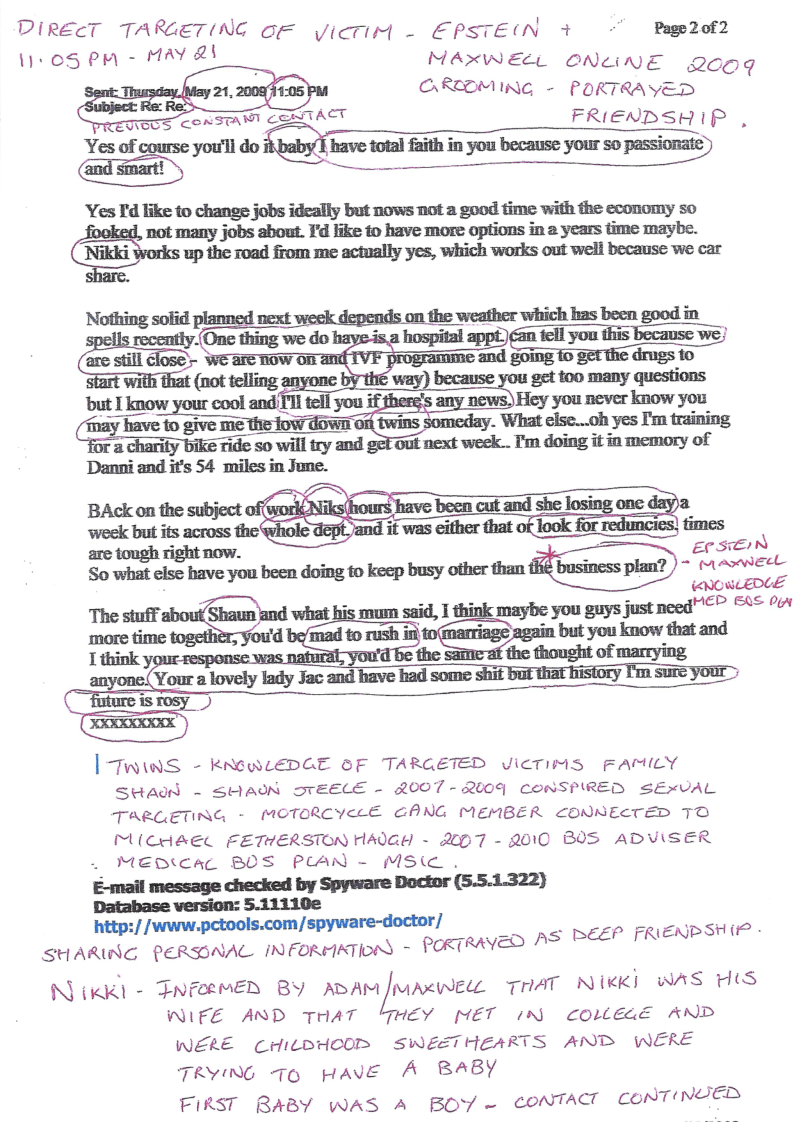 DIRECT TARGETING OF VICTIM - EPSTEIN + Page 2 of 2
11.05 PM - MAY 21 MAXWELL ONLINE 2009
GROOMING - PORTRAYED
FRIENDSHIP.
Sent: Thursday, May 21, 2009 11:05 PM
Subject: Re: Re:
PREVIOUS CONSTANT CONTACT
Yes of course you'll do it baby I have total faith in you because your so passionate
and smart!
Yes I'd like to change jobs ideally but nows not a good time with the economy so
fooked, not many jobs about. I'd like to have more options in a years time maybe.
Nikki works up the road from me actually yes, which works out well because we car
share.
Nothing solid planned next week depends on the weather which has been good in
spells recently. One thing we do have is a hospital appt. can tell you this because we
are still close - we are now on and IVF programme and going to get the drugs to
start with that (not telling anyone by the way) because you get too many questions
but I know your cool and I'll tell you if there's any news. Hey you never know you
may have to give me the low down on twins someday. What else...oh yes I'm training
for a charity bike ride so will try and get out next week.. I'm doing it in memory of
Danni and it's 54 miles in June.
BAck on the subject of work Niks hours have been cut and she losing one day a
week but its across the whole dept. and it was either that or look for reduncies, times
are tough right now.
So what else have you been doing to keep busy other than the business plan?
* EPSTEIN
- MAXWELL
KNOWLEDGE
MED BUS PLAN
The stuff about Shaun and what his mum said, I think maybe you guys just need
more time together, you'd be mad to rush in to marriage again but you know that and
I think your response was natural, you'd be the same at the thought of marrying
anyone. Your a lovely lady Jac and have had some shit but that history I'm sure your
future is rosy
xxxxxxxxx
| TWINS - KNOWLEDGE OF TARGETED VICTIMS FAMILY
SHAUN - SHAUN STEELE - 2007-2009 CONSPIRED SEXUAL
TARGETING - MOTORCYCLE GANG MEMBER CONNECTED TO
MICHAEL FETHERSTONHAUGH - 2007 - 2010 BUS ADVISER
MEDICAL BUS PLAN - MSIC.
E-mail message checked by Spyware Doctor (5.5.1.322)
Database version: 5.11110e
http://www.pctools.com/spyware-doctor/
SHARING PERSONAL INFORMATION - PORTRAYED AS DEEP FRIENDSHIP.
NIKKI - INFORMED BY ADAM/MAXWELL THAT NIKKI WAS HIS
WIFE AND THAT THEY MET IN COLLEGE AND
WERE CHILDHOOD SWEETHEARTS AND WERE
TRYING TO HAVE A BABY
FIRST BABY WAS A BOY - CONTACT CONTINUED